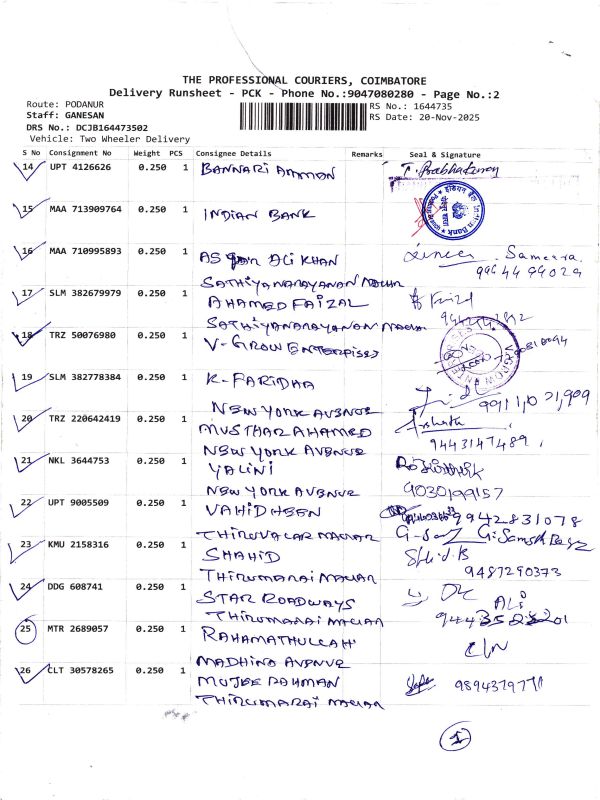 THE PROFESSIONAL COURIERS, COIMBATORE
Delivery Runsheet - PCK - Phone No.:9047080280 - Page No.:2
Route: PODANUR
RS No.: 1644735
Staff: GANESAN
RS Date: 20-Nov-2025
DRS No.: DCJB164473502
Vehicle: Two Wheeler Delivery
S No Consignment No Weight PCS Consignee Details Remarks Seal & Signature
14 UPT 4126626 0.250 1 BANNARI AMMAN T. Prabhakaran
15 MAA 713909764 0.250 1 INDIAN BANK
16 MAA 710995893 0.250 1 ALI KHAN Sameera
9944994029
SATHIYANARAYANAN NAGAR
17 SLM 382679979 0.250 1 AHAMED FAIZAL Faizal
SATHIYANARAYANAN NAGAR
18 TRZ 50076980 0.250 1 V-GROW ENTERPRISES
19 SLM 382778384 0.250 1 K-FARIDHA
NEW YORK AVENUE
20 TRZ 220642419 0.250 1 MUSTHAR AHAMED
9443147489
NEW YORK AVENUE
21 NKL 3644753 0.250 1 YALINI
9030199157
NEW YORK AVENUE
22 UPT 9005509 0.250 1 VAHIDHEEN 9942831078
THIRUVALAR NAGAR
23 KMU 2158316 0.250 1 SHAHID Shahid.B
9487290373
THIRUMARAI NAGAR
24 DDG 608741 0.250 1 STAR ROADWAYS ALi
THIRUMARAI NAGAR
25 MTR 2689057 0.250 1 RAHAMATHULLAH
MADHINA AVENUE
26 CLT 30578265 0.250 1 MUJEE RAHMAN
THIRUMARAI NAGAR